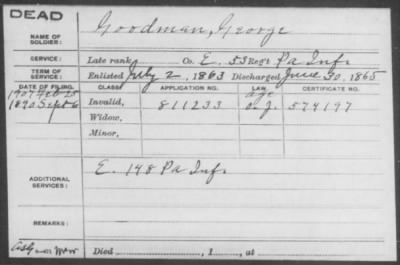 DEAD
NAME OF SOLDIER: Goodman, George
SERVICE: Late rank, Co. E. 53 Reg't Pa Inf.
TERM OF SERVICE: Enlisted July 2, 1863 Discharged June 30, 1865
DATE OF FILING. CLASS. APPLICATION NO. LAW. CERTIFICATE NO.
1907 Feb 25 age
1890 Sept 6 Invalid, 811233 a. j. 574197
Widow,
Minor,
ADDITIONAL SERVICES: E. 148 Pa Inf.
REMARKS:
Died , 1 , at